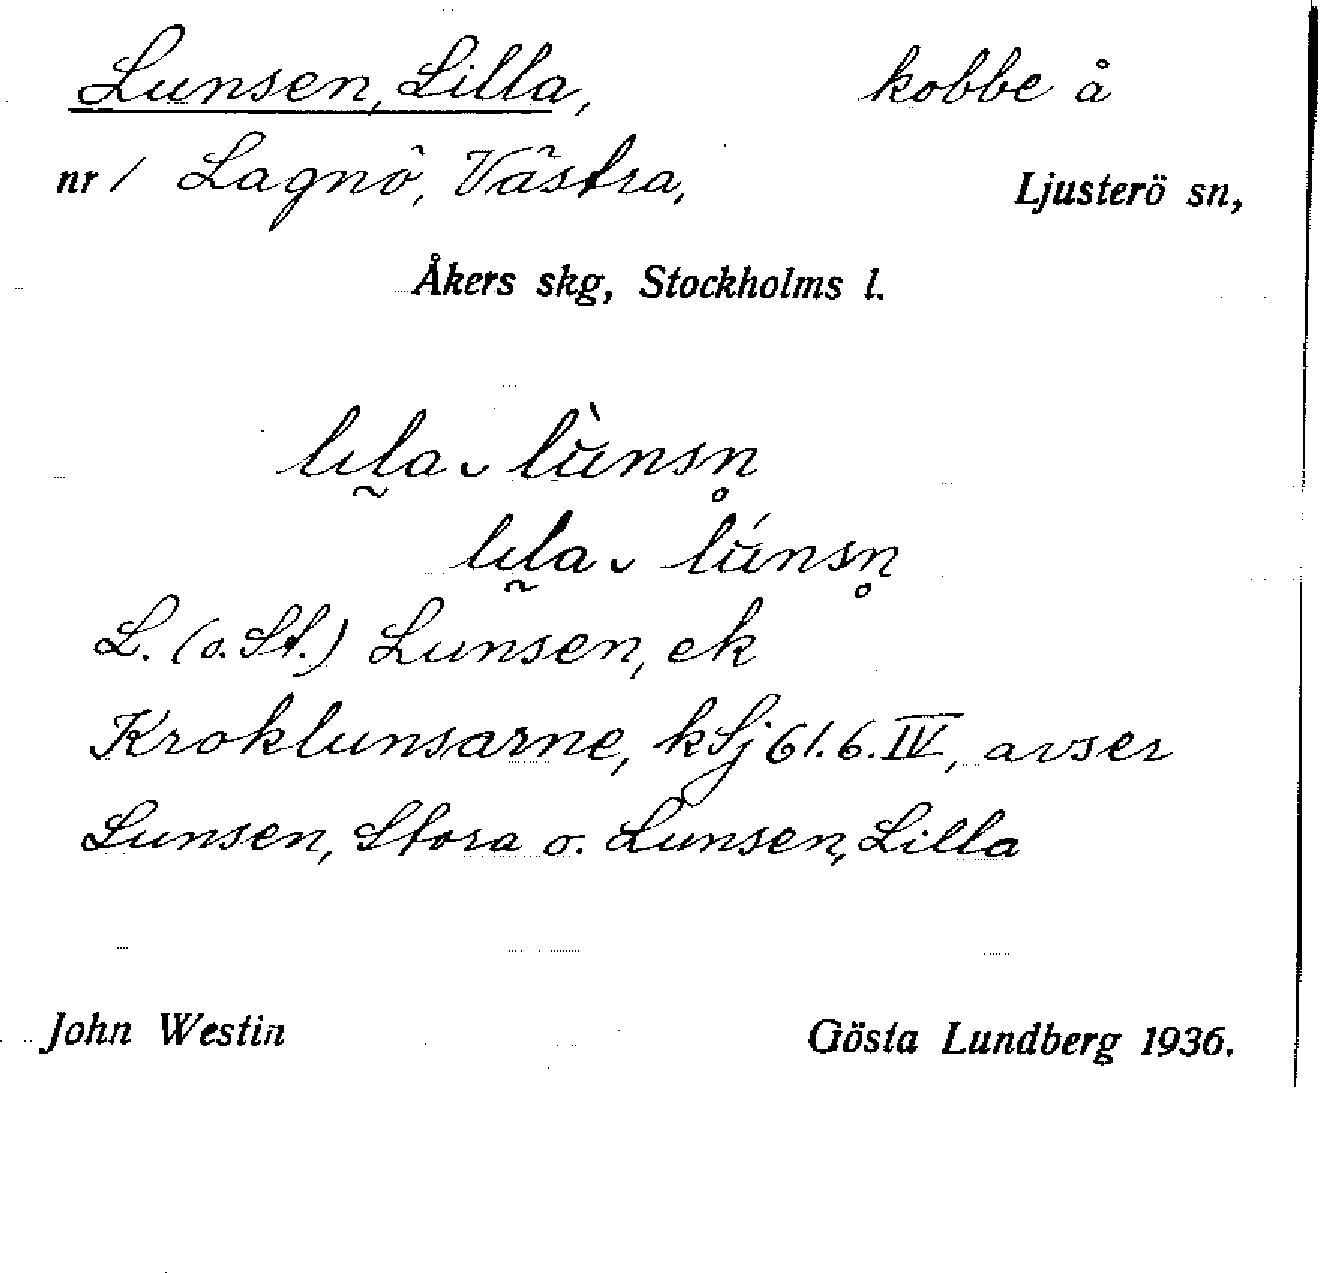 Lunsen, Lilla, kobbe å
nr 1 Lagnö, Västra, Ljusterö sn,
Åkers skg, Stockholms l.
lıl̰a ̮ lùnsn̥
lıl̰a ̮ lúnsn̥
L. (o. St.) Lunsen, ek
Kroklunsarne, kSj 61.6.IV, avser
Lunsen, Stora o. Lunsen, Lilla
John Westin Gösta Lundberg 1936.